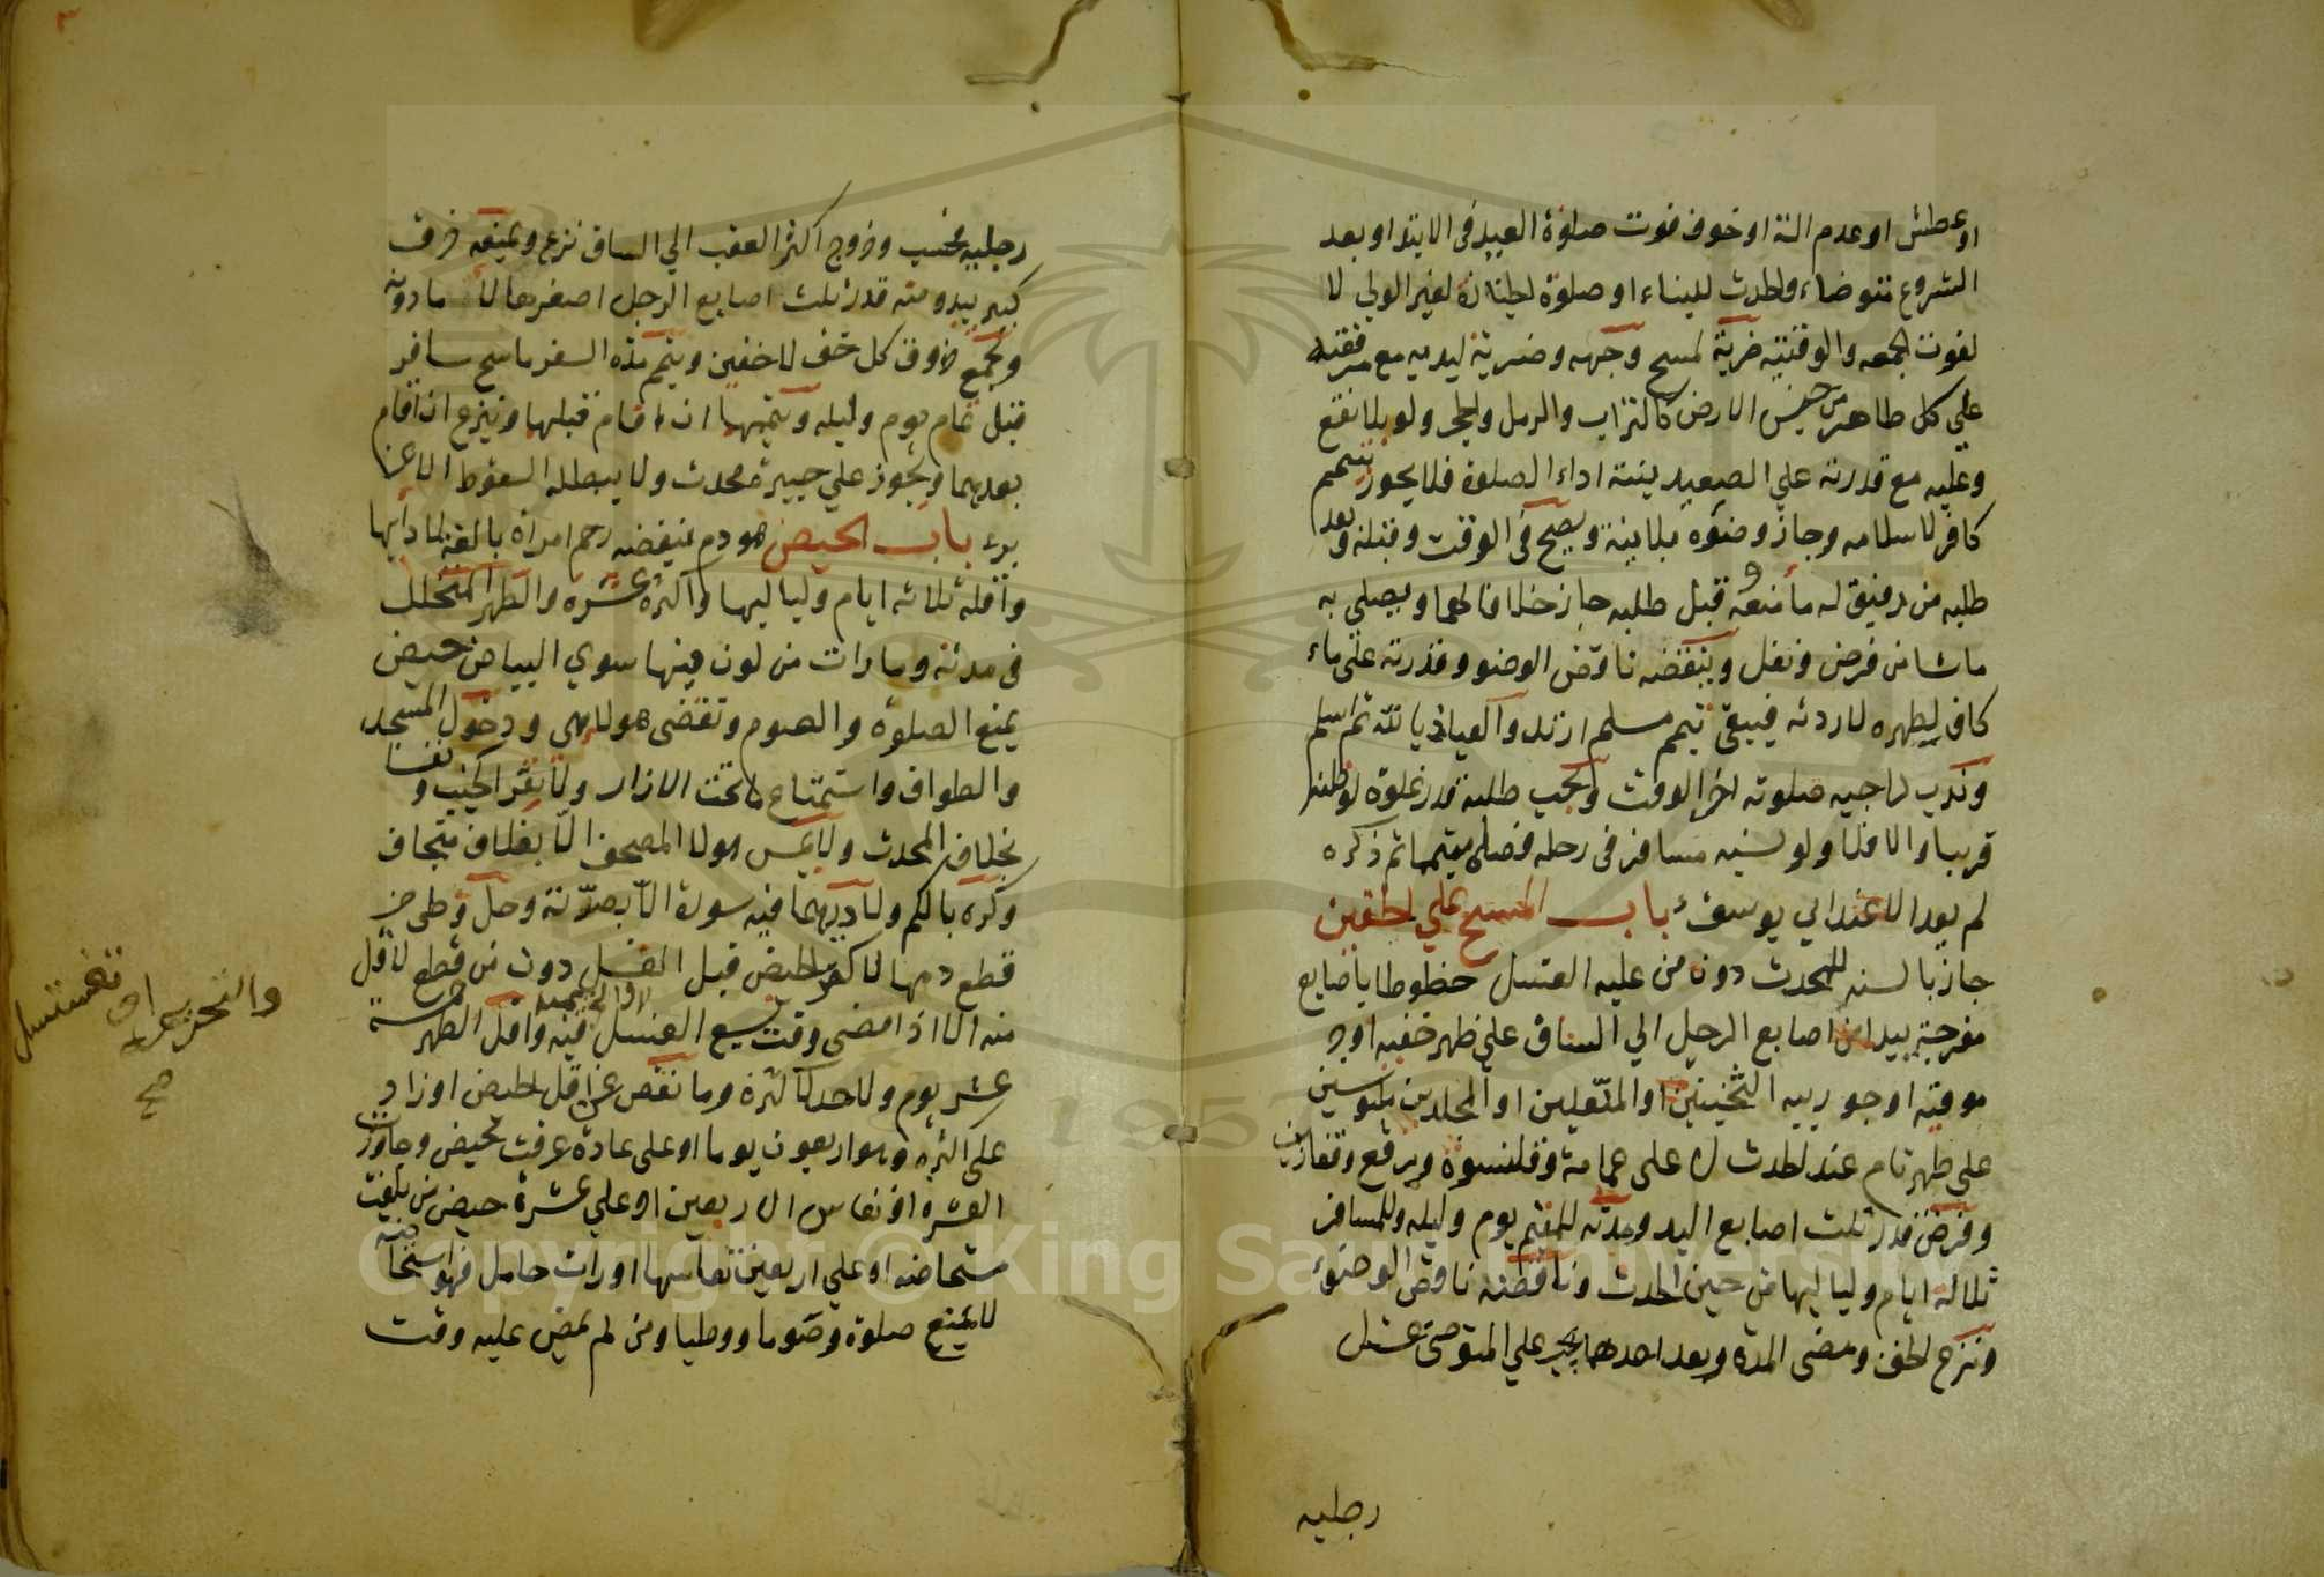 او عطش او عدم الة او خوف فوت صلوة العيد في الابتدا و بعد
الشروع متوضاء والحدث للبناء او صلوة الجنازة لغير الولي لا
لفوت الجمعه والوقتيه ضربة لمسح وجهه وضربة ليديه مع مرفقيه
علي كل طاهر من جنس الارض كالتراب والرمل والحجر ولو بلا نقع
وعليه مع قدرته علي الصعيد بنية اداء الصلوة فلا يجوز تيمم
كافر لاسلامه وجاز وضوءه بلا نية ويصح في الوقت وقبله وبعد
طلبه من رفيق له ما منعه وقبل طلبه جاز خلافا لهما ويصلي به
ما شا من فرض ونفل وينقضه ناقض الوضو وقدرته علي ماء
كاف لطهره لا ردته فيبقي تيمم مسلم ارتد والعياذ بالله ثم اسلم
وندب لراجيه صلوته اخر الوقت ويجب طلبه قدر غلوة لو ظنه
قريبا والا فلا ولو نسيه مسافر في رحله فصلي متيمما ثم ذكره
لم يعد الا عند ابي يوسف باب المسح علي الخفين
جاز بالسنه للمحدث دون من عليه الغسل خطوطا باصابع
مفرجة يبدا من اصابع الرجل الي الساق علي ظهر خفيه او جر
موقيه او جوربيه الثخينين او المنعلين او المجلدين ملبوسين
علي طهر تام عند الحدث لا علي عمامة وقلنسوة وبرقع وقفازين
وفرض قدر ثلث اصابع اليد ومدته للمقيم يوم وليله وللمسافر
ثلاثه ايام ولياليها من حين الحدث وناقضه ناقض الوضوء
ونزع الخف ومضي المده وبعد احدهما يجب علي المتوضي غسل
رجليه
رجليه فحسب وخروج اكثر العقب الي الساق نزع ويمنعه خرق
كبير يبدو منه قدر ثلث اصابع الرجل اصغرها لا ما دونه
ويجمع خروق كل خف لا خفين ويتم مده السفر ماسح سافر
قبل تمام يوم وليله ويتمهما ان اقام قبلها وينزع ان اقام
بعدهما ويجوز علي جبيرة محدث ولا يبطله السقوط الا عن
برء باب الحيض هو دم ينفضه رحم امراة بالغة لا داء بها
واقله ثلاثه ايام ولياليها واكثره عشره والطهر المتخلل
في مدته وما رات من لون فيها سوي البياض حيض
يمنع الصلوة والصوم وتقضي هو لا هي ودخول المسجد
والطواف واستمتاع ما تحت الازار ولا يقر الجنب و نفسا
بخلاف المحدث ولا يمس هولا المصحف الا بغلاف متجاف
وكره بالكم ولا درهما فيه سورة الا بصرته وحل وطي من
قطع دمها لاكثر الحيض قبل الغسل دون من قطع لاقل
منه الا اذا مضي وقت يسع الغسل فيه واقل الطهر خمسة
عشر يوم ولا حد لاكثره وما نقص عن اقل الحيض او زاد
علي اكثره وهو اربعون يوما او علي عادة عرفت لحيض وجاوزت
العشره او نفاس الاربعين او علي عشرة حيض من بلغت
مستحاضه او علي اربعين نفاسها او رات حامل فهو استحاضه
لا يمنع صلوة وصوما ووطيا ومن لم يمض عليه وقت
والتحريمة
صح